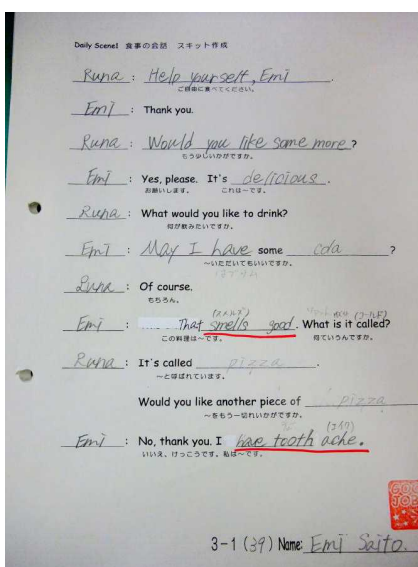 Daily Scene1 食事の会話 スキット作成
Runa : Help yourself, Emi.
ご自由に食べてください。
Emi : Thank you.
Runa : Would you like some more?
もう少しいかがですか。
Emi : Yes, please. It's delicious.
お願いします。 これは〜です。
Runa : What would you like to drink?
何が飲みたいですか。
Emi : May I have some coda ?
〜いただいてもいいですか。
Luna : Of course.
もちろん。
(スメルズ) (コールド)
Emi : That smells good. What is it called?
この料理は〜です。 何ていうんですか。
Runa : It's called pizza.
〜とよばれています。
Would you like another piece of pizza
〜をもう一切れいかがですか。
(エイク)
Emi : No, thank you. I have tooth ache.
いいえ、けっこうです。私は〜です。
GOOD JOB
3-1 (39) Name: Emi Saito.